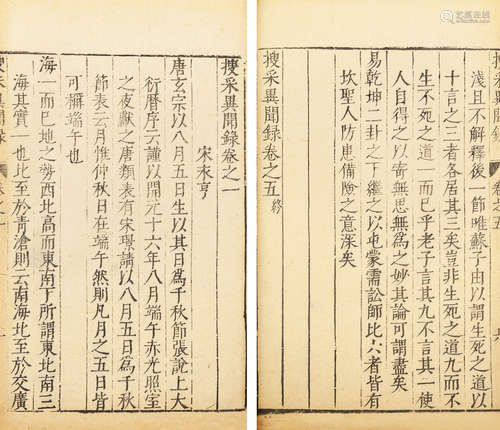 搜采異聞錄 卷之五 六
淺且不解釋後一節唯蘇子由以謂生死之道以
十言之三者各居其三矣豈非生死之道九而不
生不死之道一而已乎老子言其九不言其一使
人自得之以寄無思無為之妙其論可謂盡矣
易乾坤二卦之下繼之以屯蒙需訟師比六者皆有
坎聖人防患備險之意深矣
搜采異聞錄卷之五終
搜采異聞錄卷之一
宋永亨
唐玄宗以八月五日生以其日爲千秋節張說上大
衍曆序云謹以開元十六年八月端午赤光照室
之夜獻之唐類表有宋璟請以八月五日爲千秋
節表云月惟仲秋日在端午然則凡月之五日皆
可稱端午也
海一而已地之勢西北高而東南下所謂東北南三
海其實一也北至於青滄則云南海北至於交廣
搜采異聞錄 卷之一 一